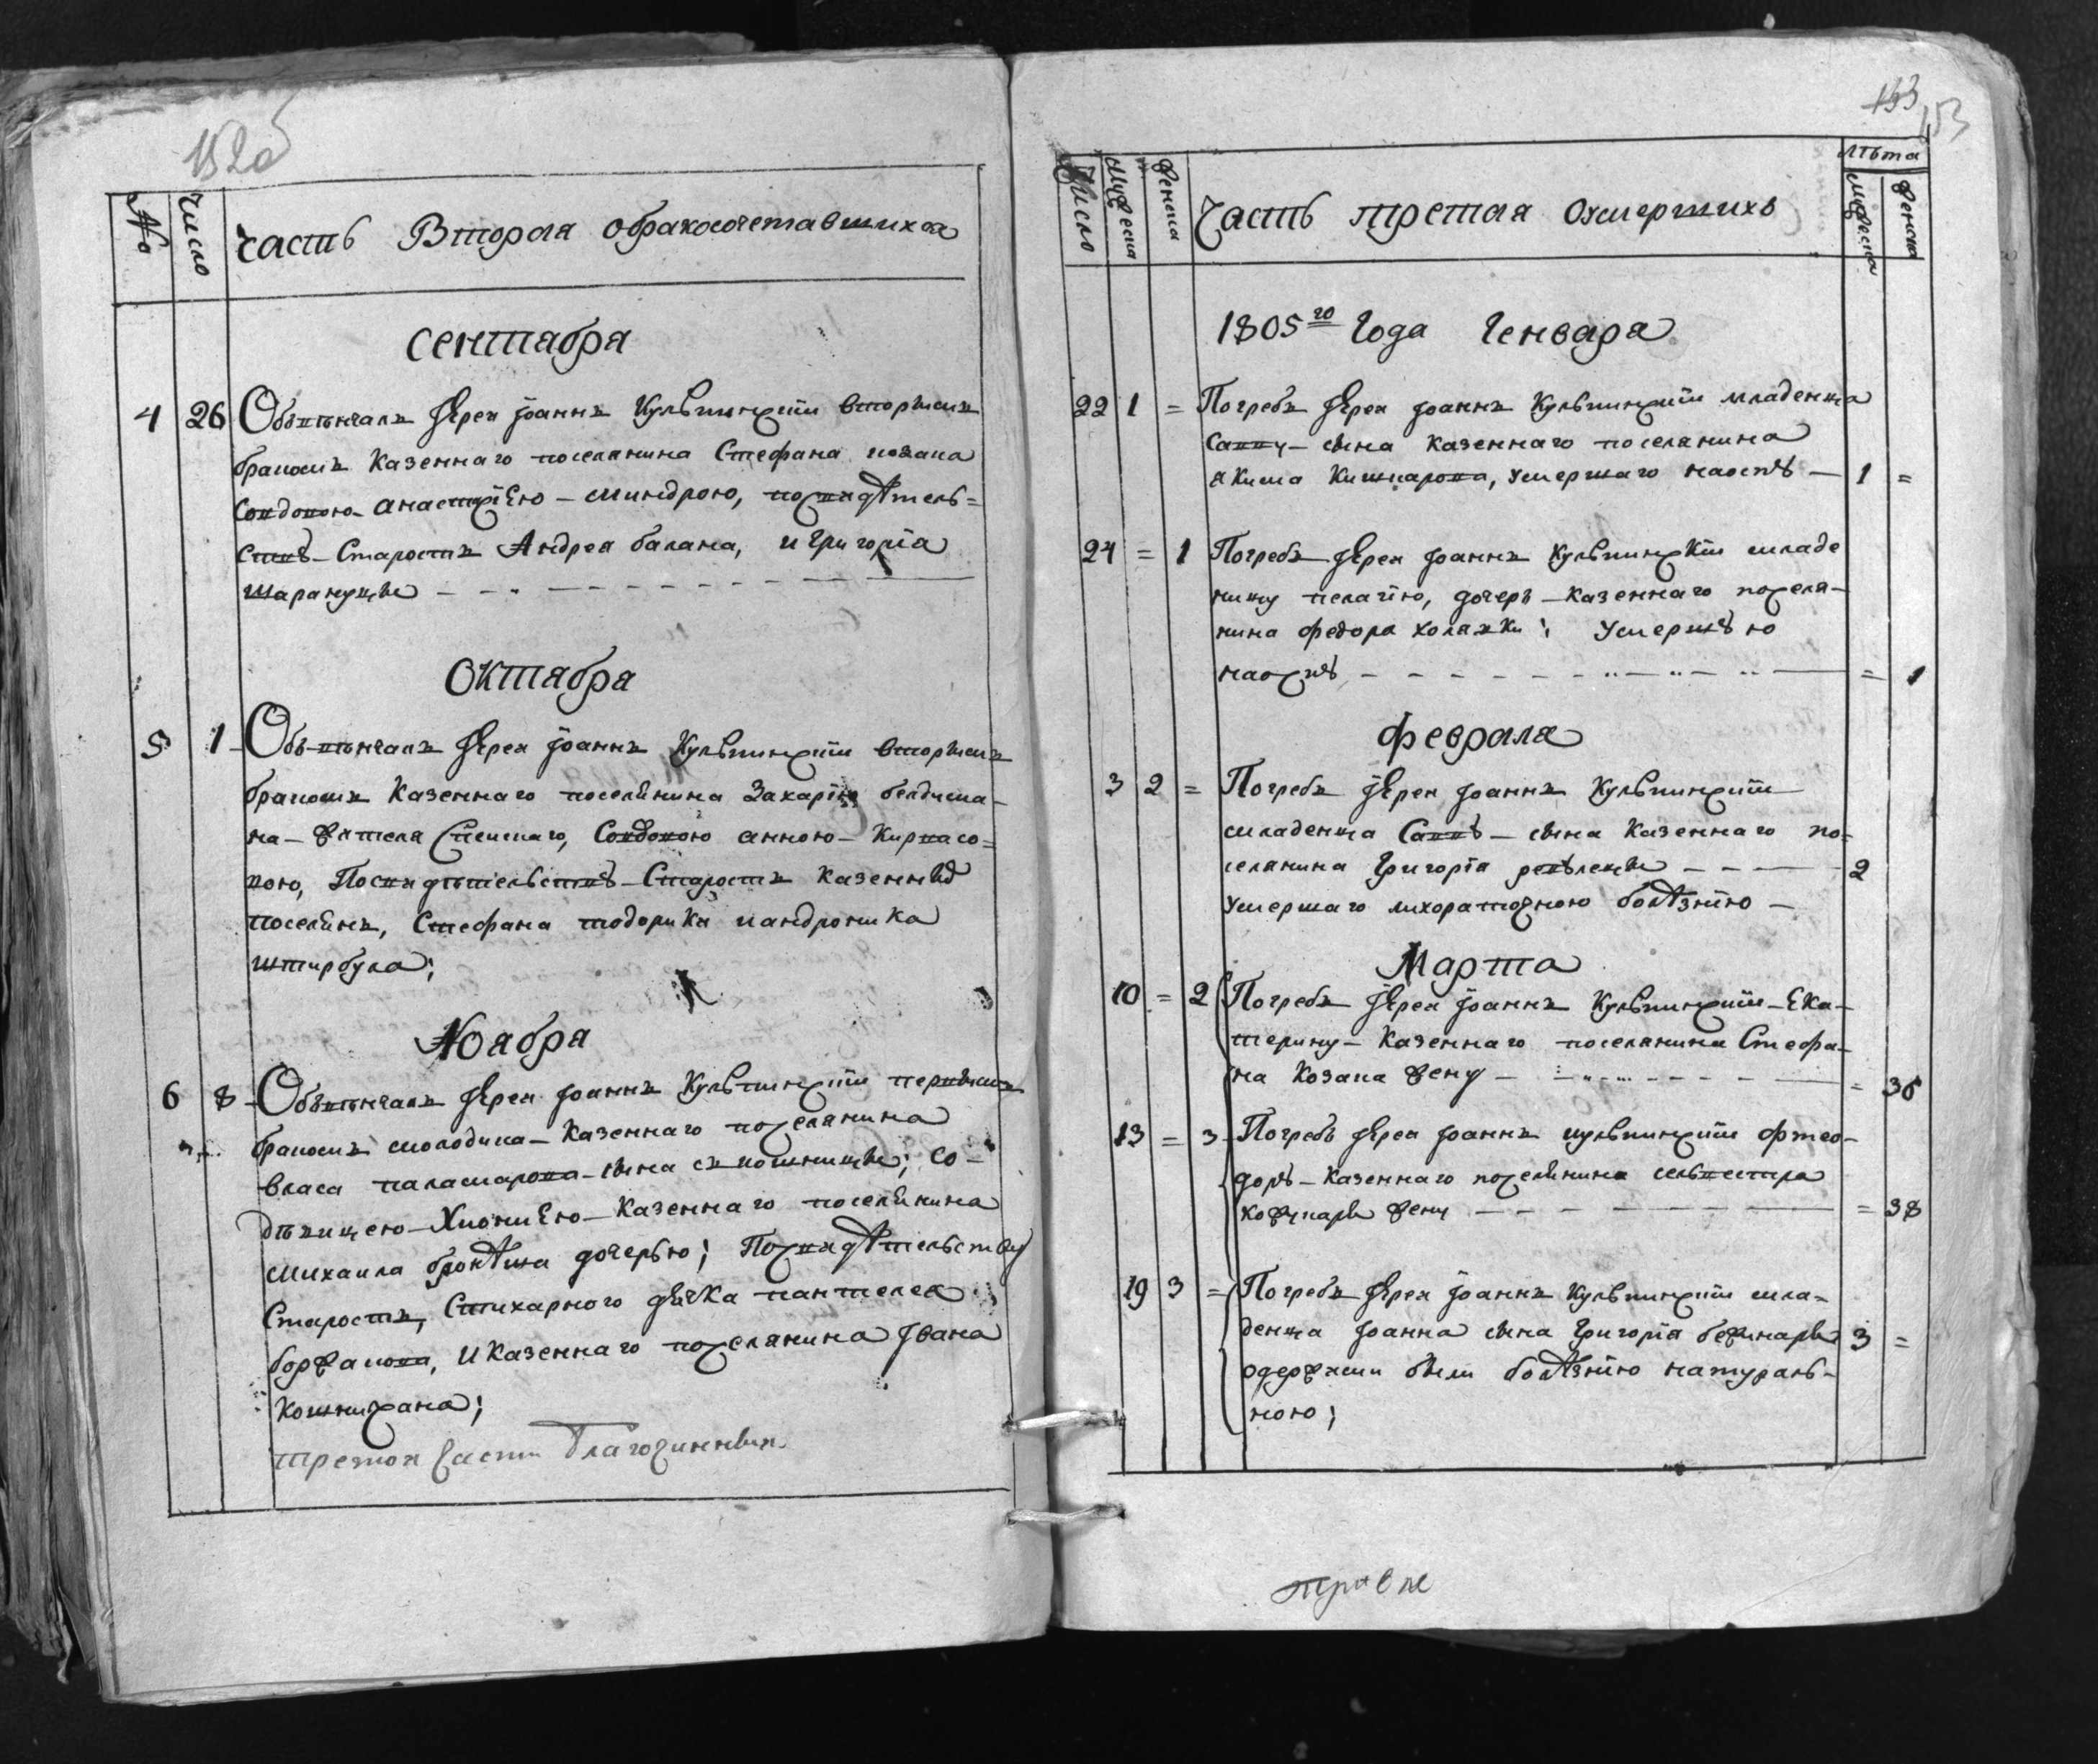 152об
№ Число Часть Вторая обракосочетавшихся
Сентября
4 26 Обвѣнчалъ Іереи Іоаннъ Кульчинскїи вторымъ
бракомъ казеннаго поселянина Стефана козака
Совдовою анастасїею – миндрою, посвидѣтель=
ствѣ – Старостъ Андрея балана, и григорїа
шарануцы
Октября
5 1 Обвѣнчалъ Іереи Іоаннъ Кульчинскїи вторымъ
бракомъ казеннаго поселянина Захарїю белдима-
на – жителя Совдовою анною – Кирнасо=
вою, Посвидѣтельствѣ – Старостъ казенныхъ
поселянъ, Стефана тодорика иандроника
штирбула;
Ноября
6 8 Обвѣнчалъ Іереи Іоаннъ Кульчинскїи первымъ
бракомъ молодика – казеннаго поселянина
власа паламарова – сына скиошницы; Со-
дѣвицею – Хиониею – казеннаго поселянина
михаила дочерью; Посвидѣтельству
Старостъ, Стихарного дячка пантелея
боржакова, и казеннаго поселянина Івана
кошнирана;
третои Части Благочинныи
133
153
Число Мужеска Женска Часть третая Оумершихъ лѣта Мужеска Женска
1805го Года Генваря
22 1 = Погребъ Іереи Іоаннъ Кульчинскїи младенца
Савву – сына казеннаго поселянина
якима Кишкарова, умершаго наоспѣ – 1 =
24 = 1 Погребъ Іереи Іоаннъ Кульчинскїи младе
ницу пелагїю, дочерь – казеннаго поселя-
нина федора холявки; Умершѣю
наоспѣ = 1
февраля
3 2 = Погребъ Іереи Іоаннъ Кульчинскїи
младенца Саввѣ – сына казеннаго по-
селянина Григорїя ревѣленцы 2
умершаго лихораточною болѣзнїю –
Марта
10 = 2 Погребъ Іереи Іоаннъ Кульчинскїи – Ека-
терину – казеннаго поселянина Стефа-
на козака жену = 36
13 = 3 Погребъ Іереи Іоаннъ кульчинскїи фтео-
дорѣ – казеннаго поселянина сельвестра
кожукары жену = 38
19 3 = Погребъ Іереи Іоаннъ Кульчинскїи мла-
денца Іоанна сына Григорїя бежнары 3 =
одержими были болѣзнїю натураль-
ною;